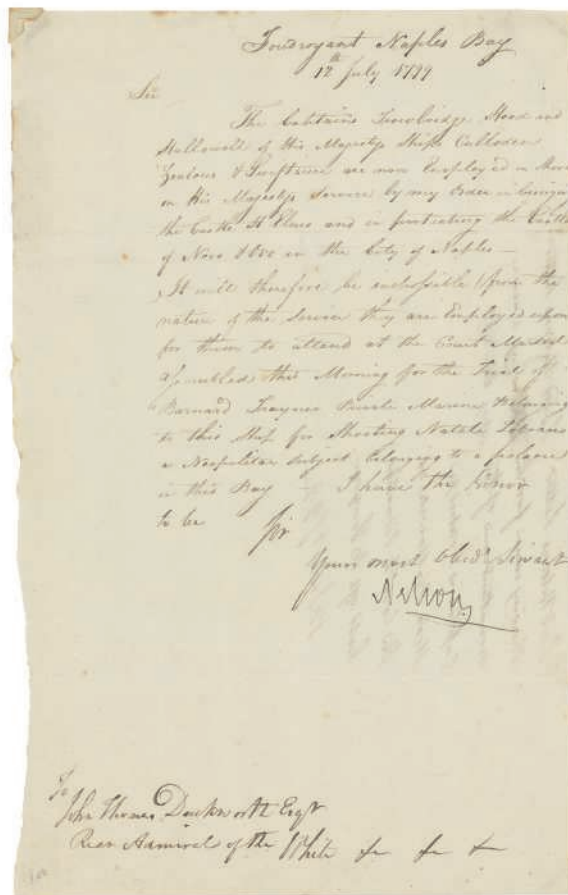 Foudroyant Naples Bay
12th July 1799
Sir
The Captains Trowbridge Hood and
Hallowell of His Majestys Ships Culloden
Zealous & Swiftsure are now Employed on Shore
on His Majestys Service by my Order in
the Castle St Elmo and in protecting the Castle
of Novo & in the City of Naples —
It will therefore be impossible from the
nature of the Service they are Employed upon
for them to attend at the Court Martial
Assembled this Morning for the Trial of
Barnard Private Marine Belonging
to this Ship for Shooting Natale
a Neapolitan Subject belonging to a polacre
in this Bay — I have the honor
to be Sir
Your most Obedt Servant
Nelson
To
John Thomas Duckworth Esqr
Rear Admiral of the White &c &c &c